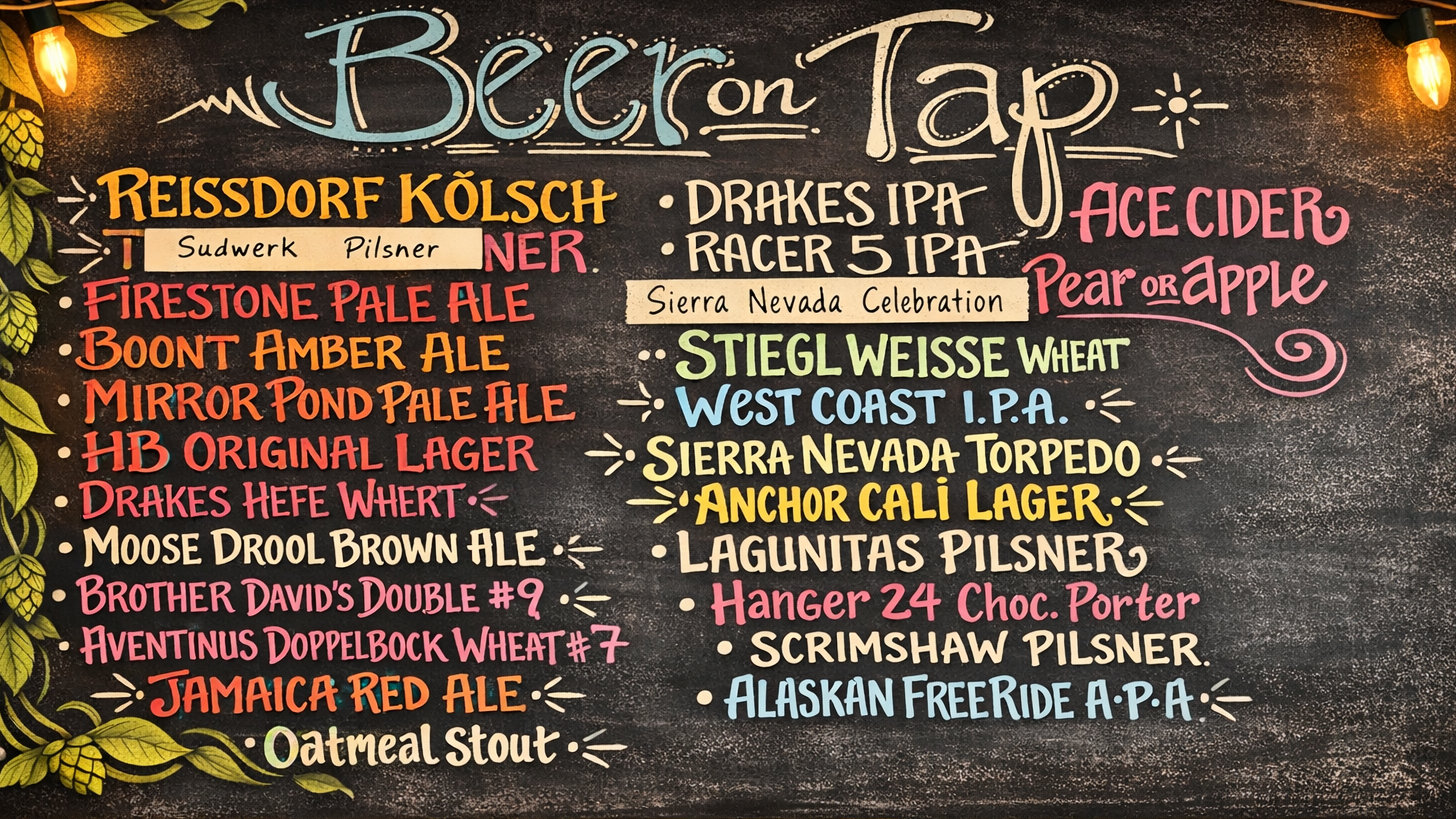 Beer on Tap
REISSDORF KÕLSCH
T Sudwerk Pilsner NER.
FIRESTONE PALE ALE
BOONT AMBER ALE
MIRROR POND PALE ALE
HB ORIGINAL LAGER
DRAKES HEFE WHERT
MOOSE DROOL BROWN ALE
BROTHER DAVID'S DOUBLE #9
AVENTINUS DOPPELBOCK WHEAT #7
JAMAICA RED ALE
Oatmeal Stout
DRAKES IPA
RACER 5 IPA
Sierra Nevada Celebration
STIEGL WEISSE WHEAT
WEST COAST I.P.A.
SIERRA NEVADA TORPEDO
ANCHOR CALI LAGER
LAGUNITAS PILSNER
Hanger 24 Choc. Porter
SCRIMSHAW PILSNER.
ALASKAN FREERIDE A.P.A.
ACE CIDER
Pear OR APPLE